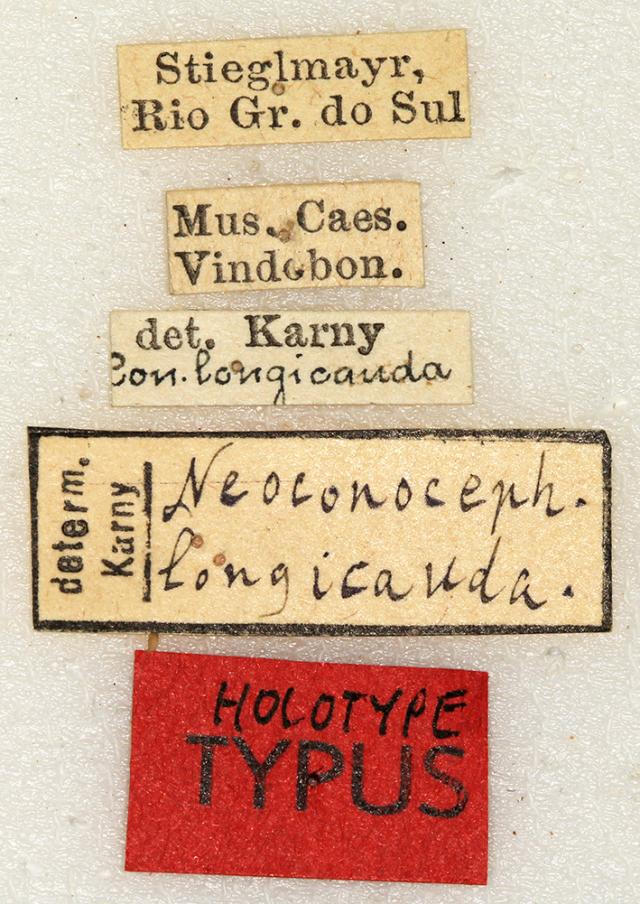 Stieglmayr,
Rio Gr. do Sul
Mus. Caes.
Vindobon.
det. Karny
Con. longicauda
determ.
Karny
Neoconoceph.
longicauda.
HOLOTYPE
TYPUS